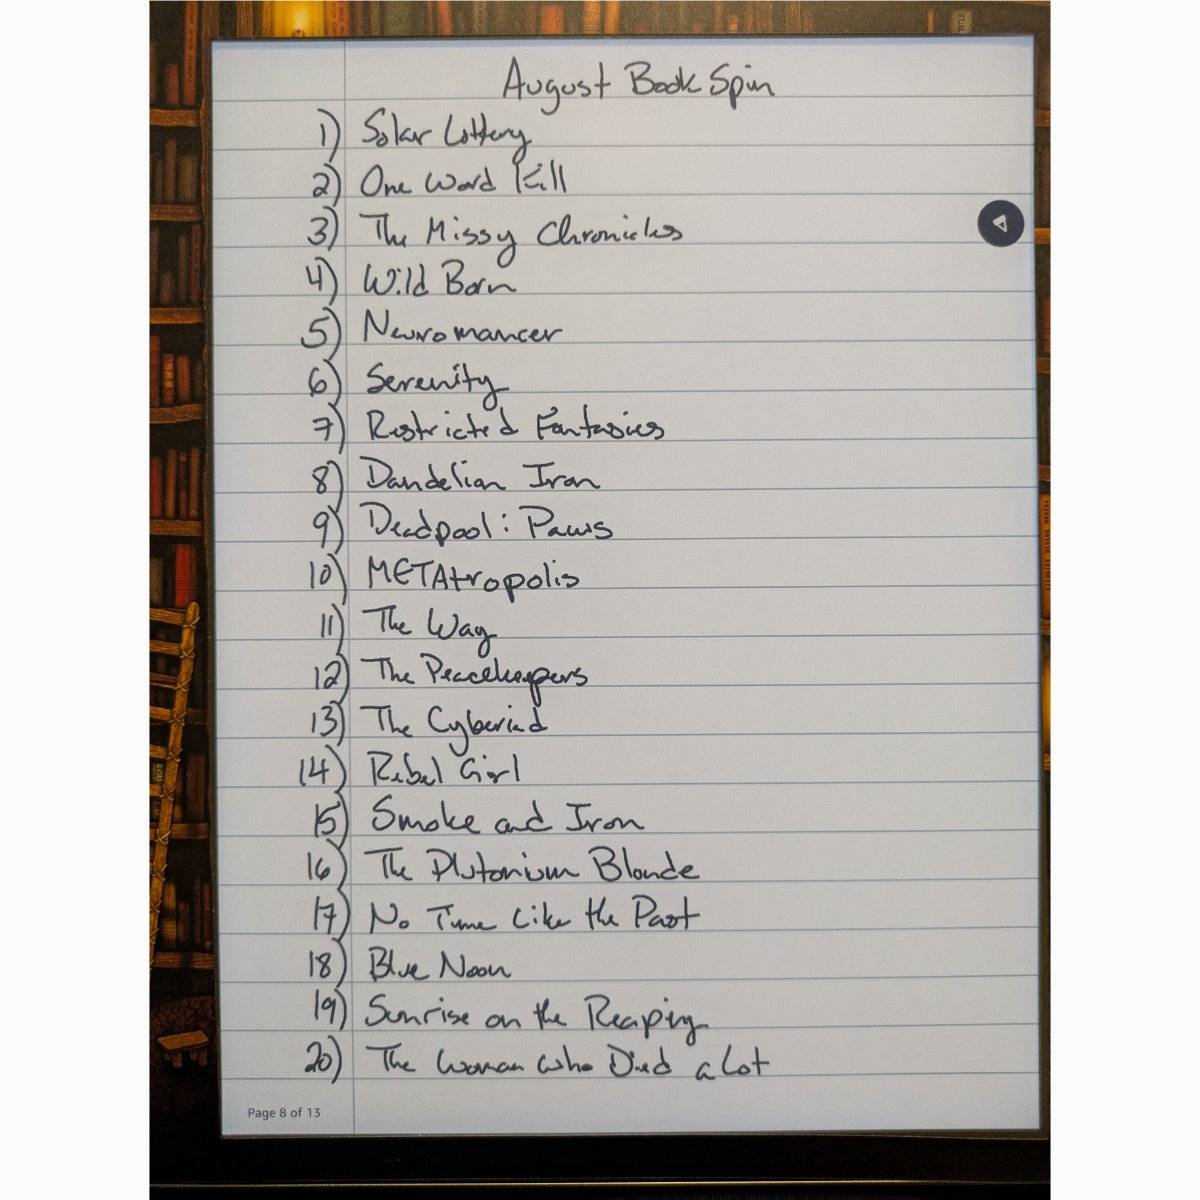 August Book Spin
1) Solar Lottery
2) One Word Kill
3) The Missy Chronicles
4) Wild Born
5) Neuromancer
6) Serenity
7) Restricted Fantasies
8) Dandelion Iron
9) Deadpool: Paws
10) METAtropolis
11) The Way
12) The Peacekeepers
13) The Cyberiad
14) Rebel Girl
15) Smoke and Iron
16) The Plutonium Blonde
17) No Time Like the Past
18) Blue Noon
19) Sunrise on the Reaping
20) The Woman Who Died a Lot
Page 8 of 13